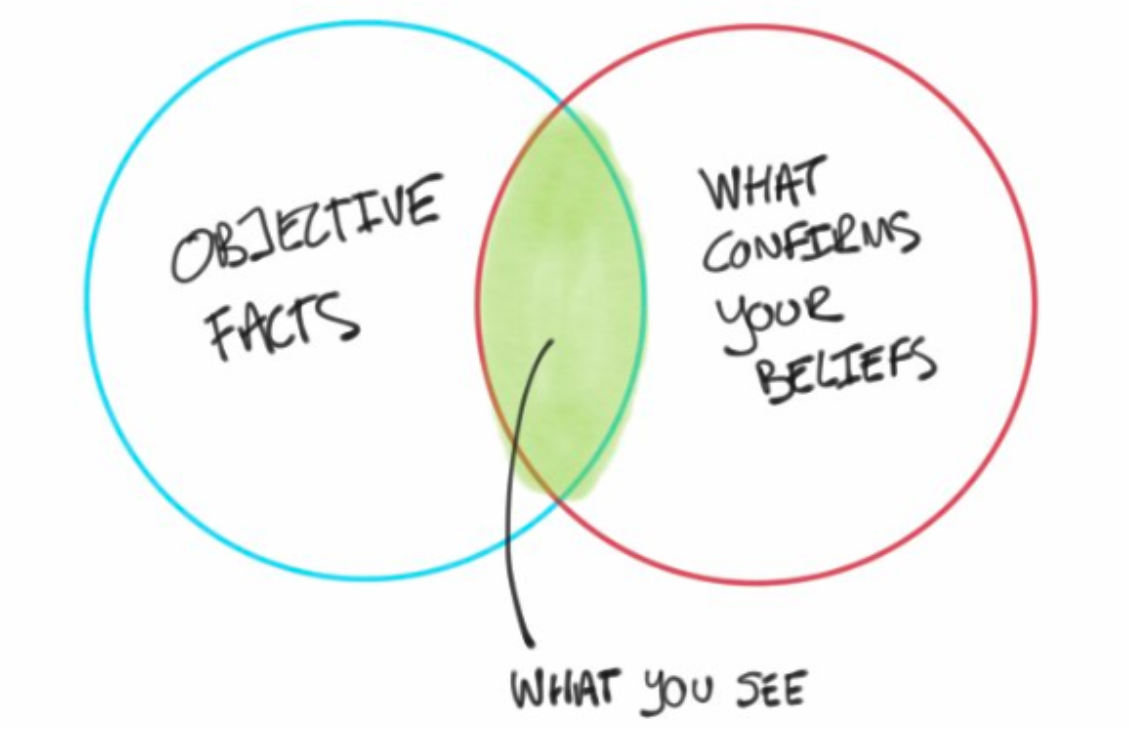 OBJECTIVE
FACTS
WHAT
CONFIRMS
YOUR
BELIEFS
WHAT YOU SEE